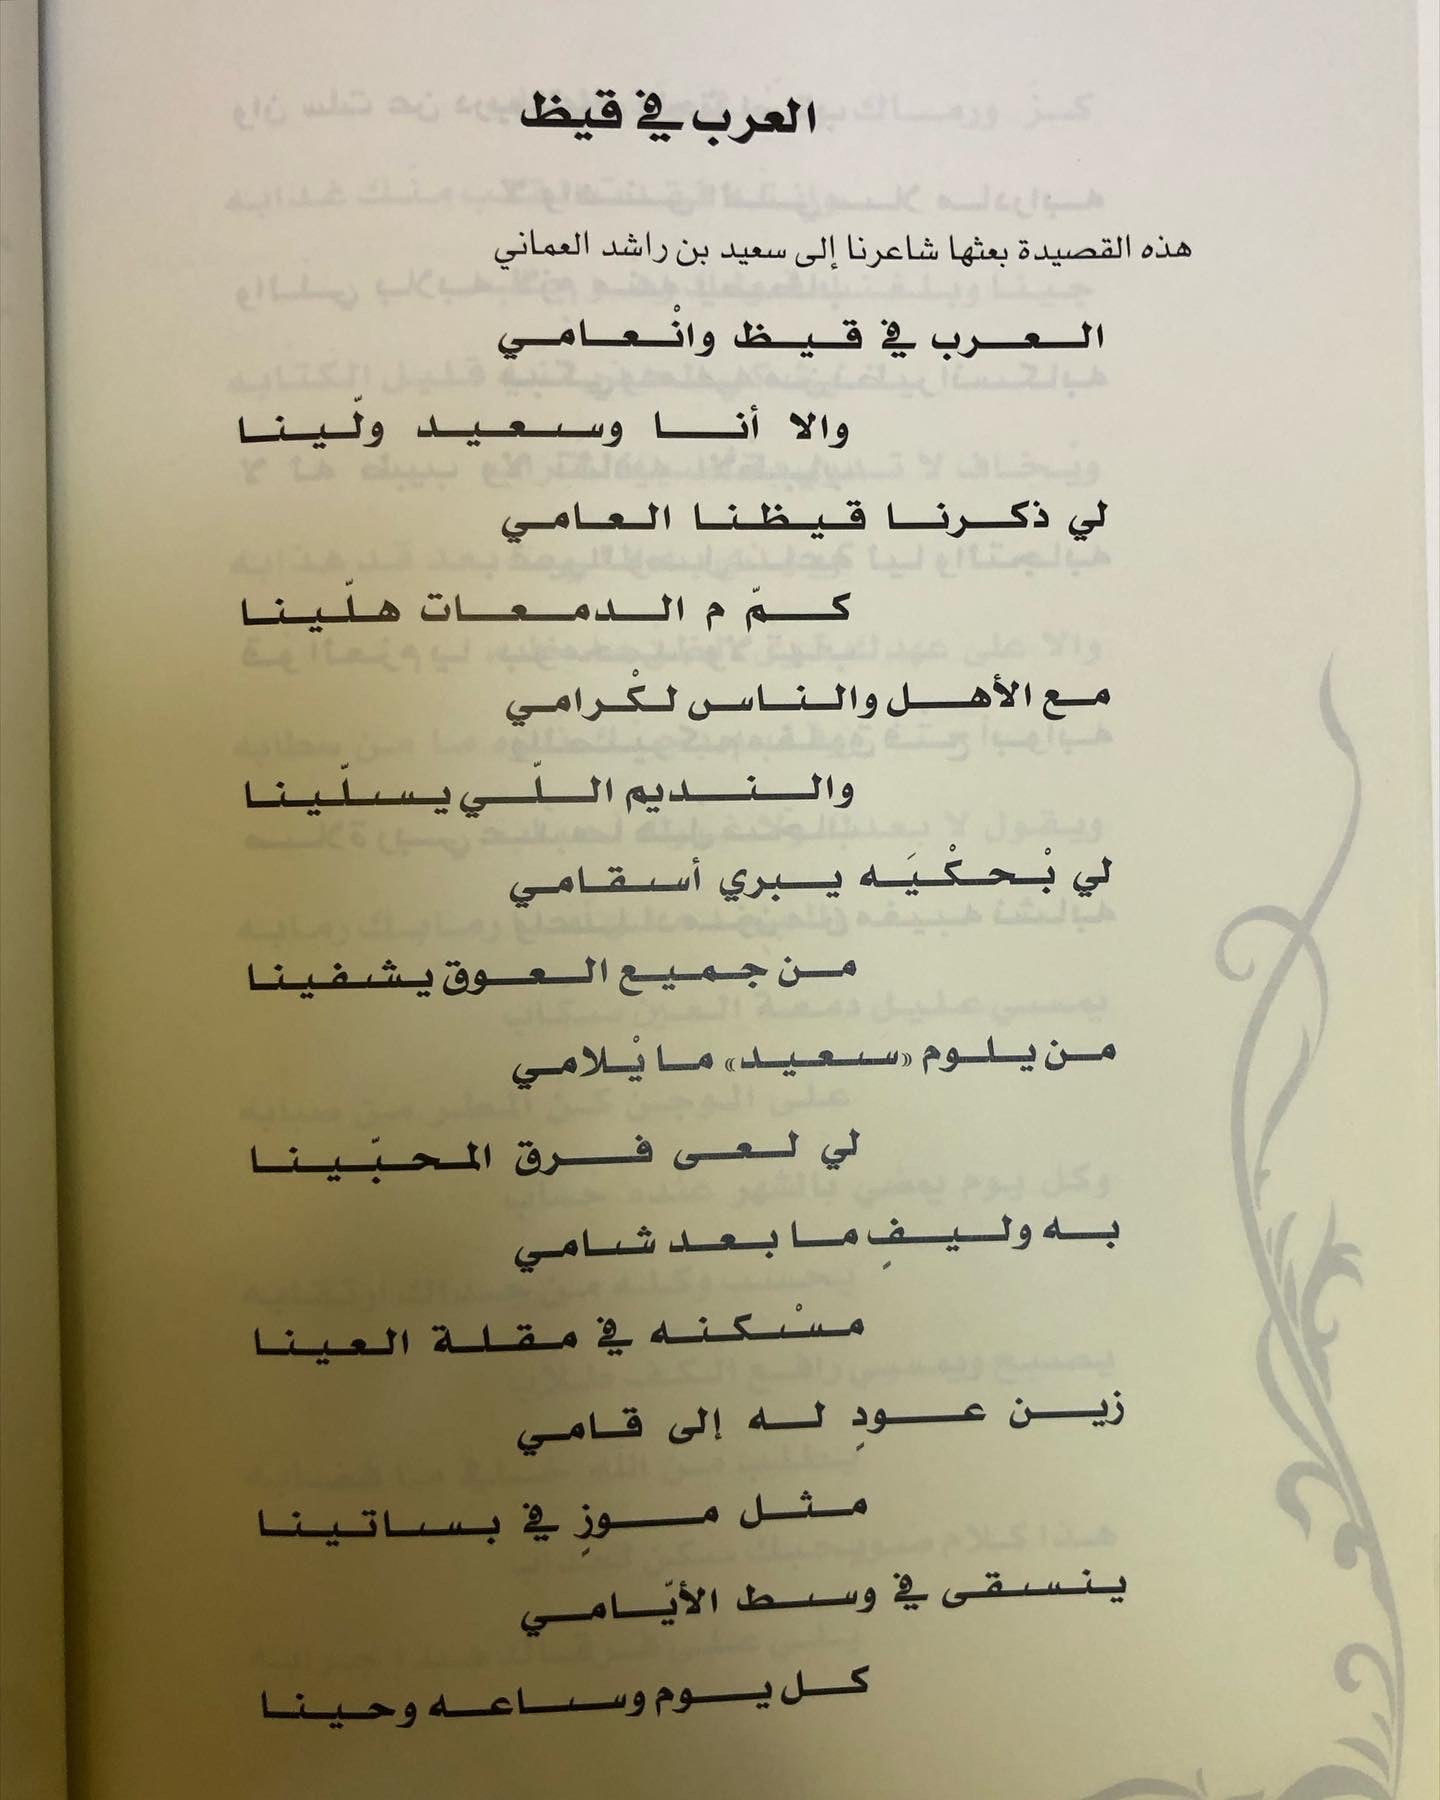 العرب في قيظ
هذه القصيدة بعثها شاعرنا إلى سعيد بن راشد العماني
العرب في قيظ وانْعامي
والا أنا وسعيد ولّينا
لي ذكرنا قيظنا العامي
كمّ م الدمعات هلّينا
مع الأهل والناس لكْرامي
والنديم اللّي يسلّينا
لي بْحكْيَه يبري أسقامي
من جميع العوق يشفينا
من يلوم «سعيد» ما يْلامي
لي لعى فرق المحبّينا
به وليفٍ ما بعد شامي
مسْكنه في مقلة العينا
زين عودٍ له إلى قامي
مثل موزٍ في بساتينا
ينسقى في وسط الأيّامي
كل يوم وساعه وحينا